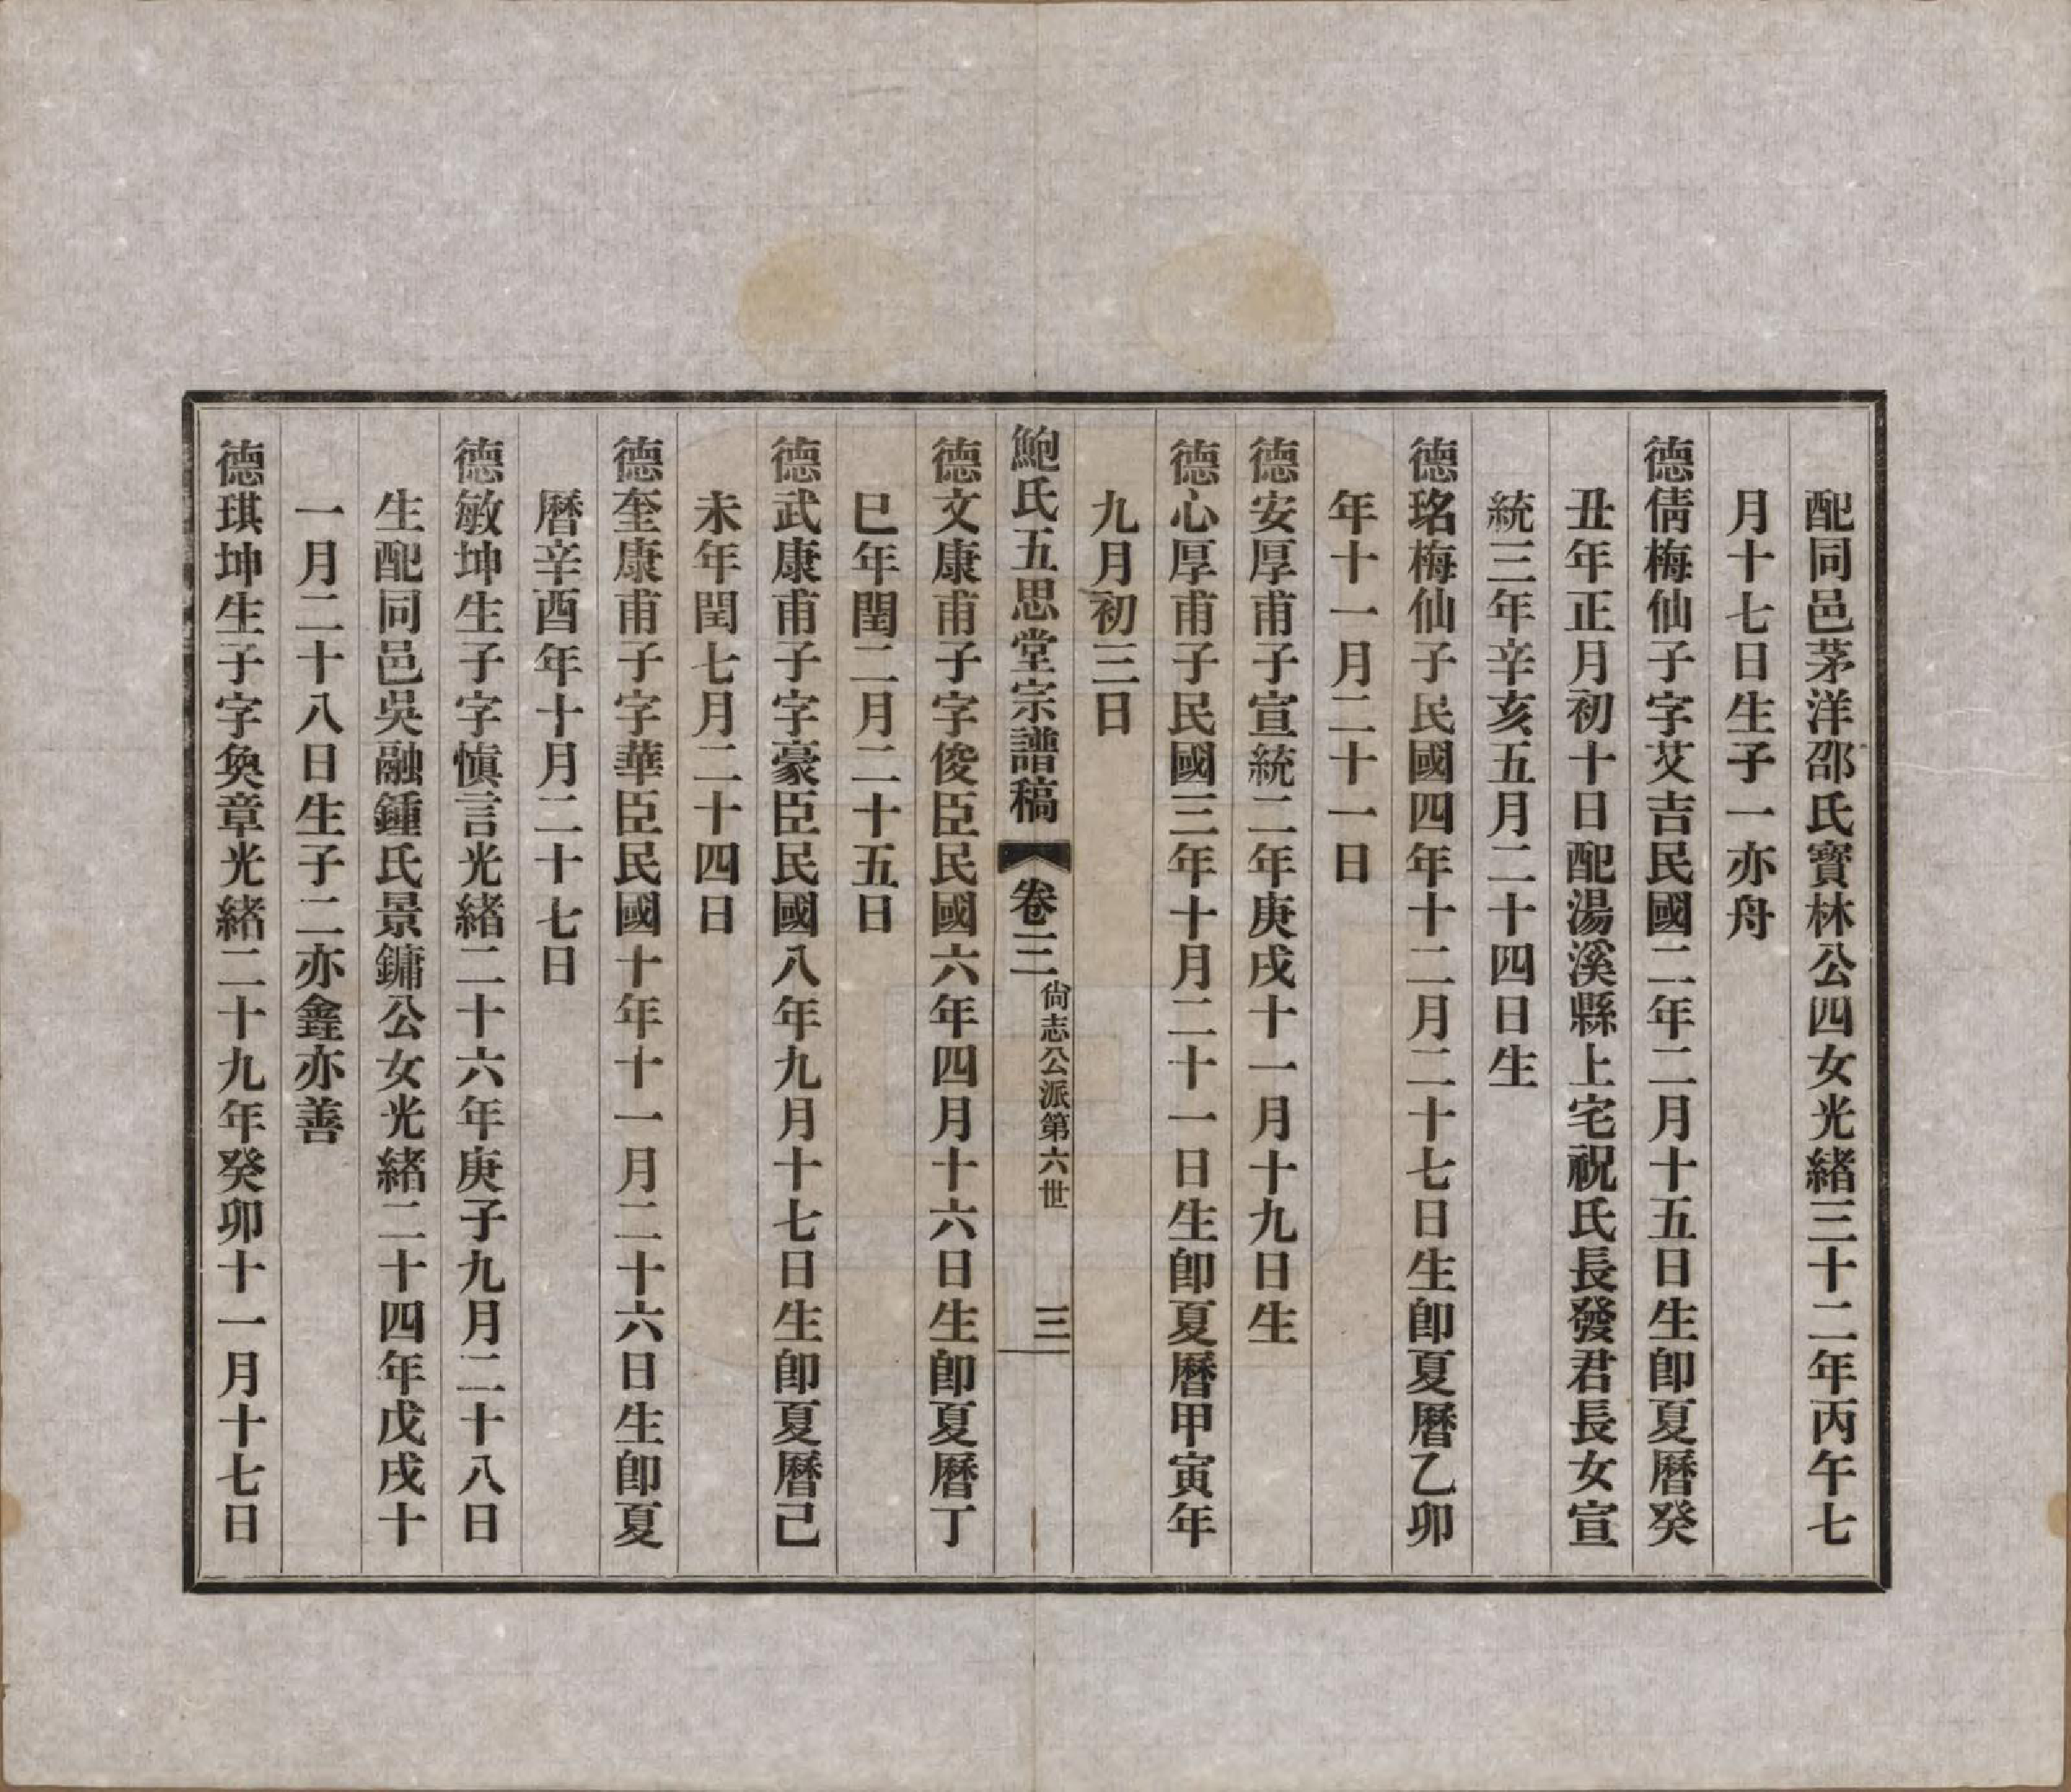 配同邑茅洋邵氏寶林公四女光緒三十二年丙午七
月十七日生子一亦舟
德倩梅仙子字艾吉民國二年二月十五日生卽夏曆癸
丑年正月初十日配湯溪縣上宅祝氏長發君長女宣
統三年辛亥五月二十四日生
德珞梅仙子民國四年十二月二十七日生卽夏曆乙卯
年十一月二十一日
德安厚甫子宣統二年庚戌十一月十九日生
德心厚甫子民國三年十月二十一日生卽夏曆甲寅年
九月初三日
鮑氏五思堂宗譜稿 卷三 尙志公派第六世 三
德文康甫子字俊臣民國六年四月十六日生卽夏曆丁
巳年閏二月二十五日
德武康甫子字豪臣民國八年九月十七日生卽夏曆己
未年閏七月二十四日
德奎康甫子字華臣民國十年十一月二十六日生卽夏
曆辛酉年十月二十七日
德敏坤生子字愼言光緒二十六年庚子九月二十八日
生配同邑吳融鍾氏景鏞公女光緒二十四年戊戌十
一月二十八日生子二亦鑫亦善
德琪坤生子字奐章光緒二十九年癸卯十一月十七日